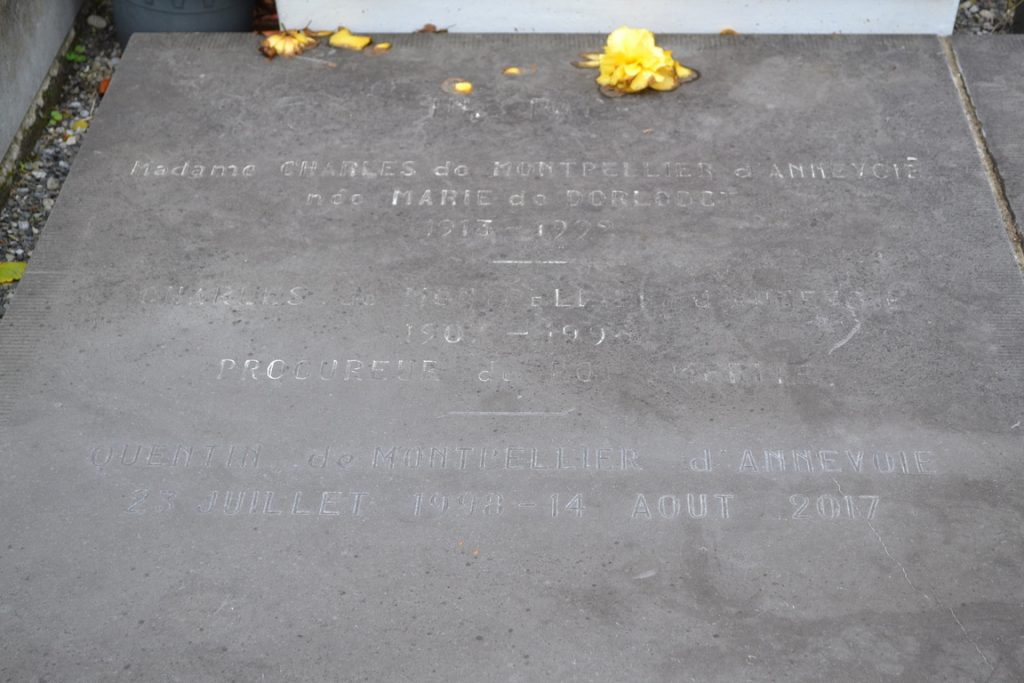 Madame CHARLES de MONTPELLIER d'ANNEVOIE
née MARIE de DORLODOT
CHARLES de MONTPELLIER d'ANNEVOIE
PROCUREUR du ROI
QUENTIN de MONTPELLIER d'ANNEVOIE
23 JUILLET 1998 - 14 AOUT 2017